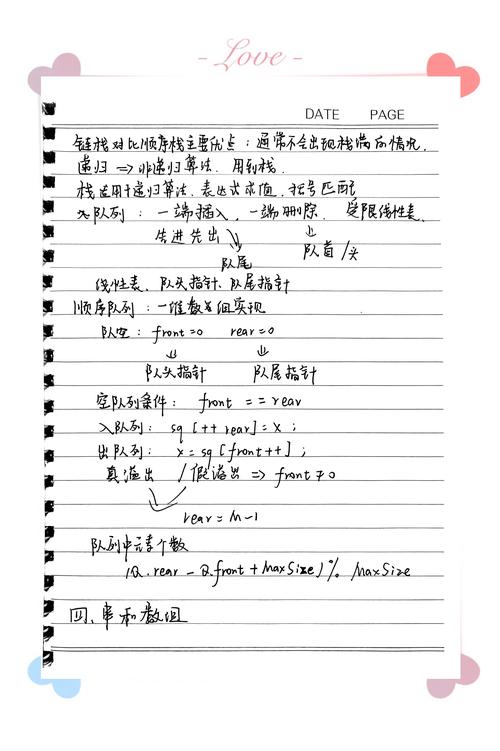 - Love -
DATE PAGE
链栈对比顺序栈主要优点：通常不会出现栈满的情况.
递归 => 非递归算法. 用到栈.
栈适用于递归算法. 表达式求值, 括号匹配
队列：一端插入, 一端删除. 受限线性表.
先进先出 ↓ ↓
队尾 队首/头
线性表、队头指针、队尾指针
顺序队列：一维数组实现
队空： front=0 rear=0
↓ ↓
队头指针 队尾指针
空队列条件： front == rear
入队列： sq [++ rear] = x ;
出队列： x = sq [front++] ;
真溢出 / 假溢出 => front ≠ 0
rear = M-1
队列中元素个数
(Q.rear - Q.front + MaxSize) % MaxSize
四、串和数组